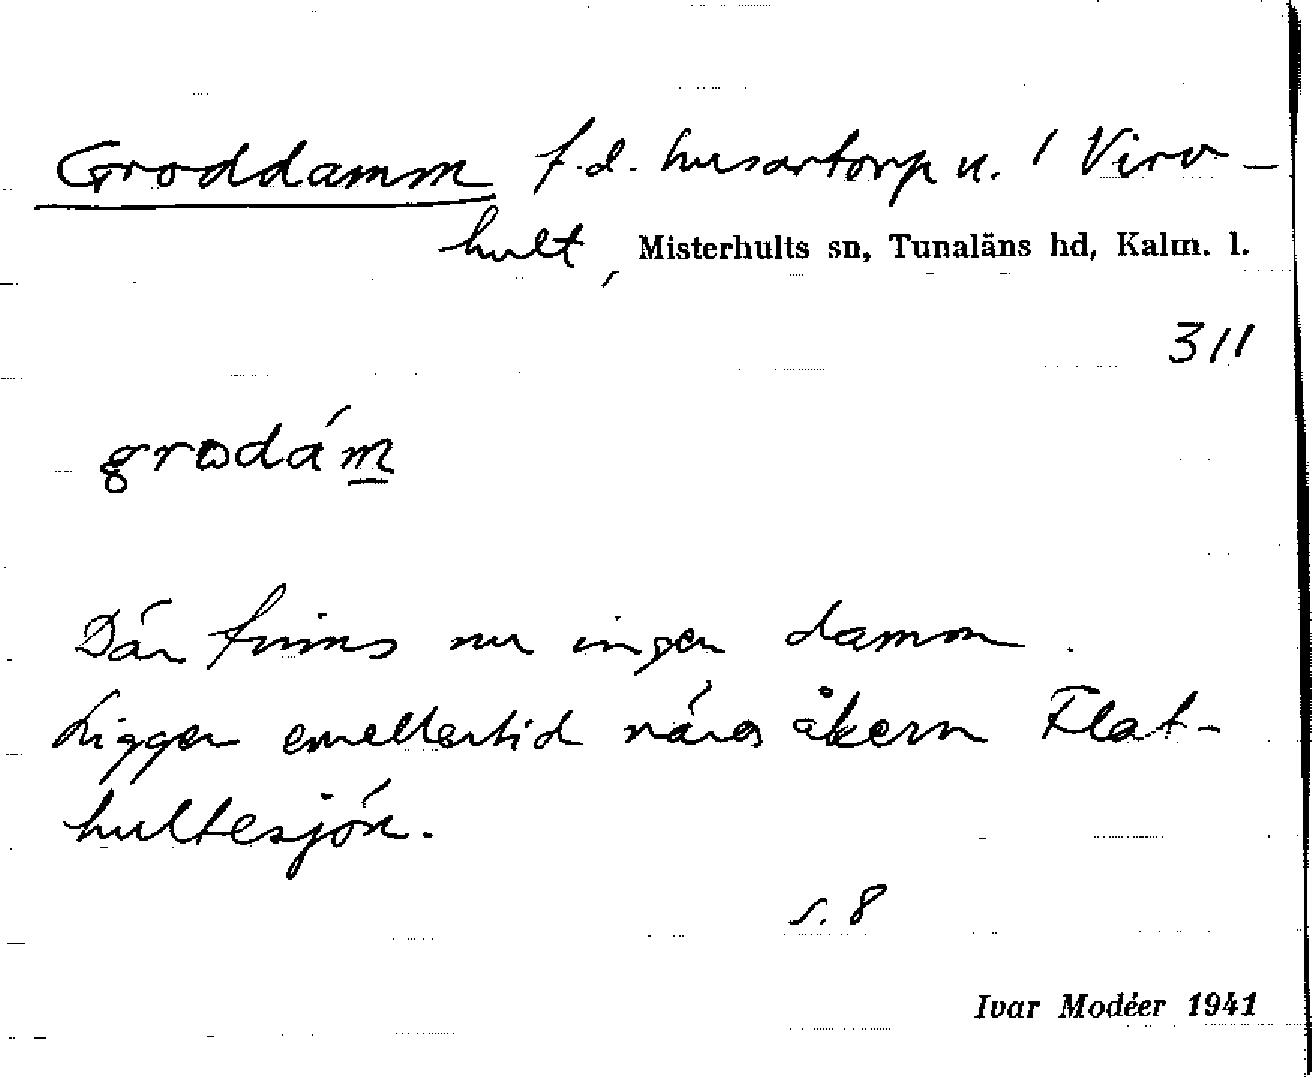 Groddamm f.d. husartorp u. 1 Viro-
hult, Misterhults sn, Tunaläns hd, Kalm. l.
311
grodám
Där finns nu ingen damm.
Ligger emellertid nära åkern Flat-
hultesjön.
s. 8
Ivar Modéer 1941